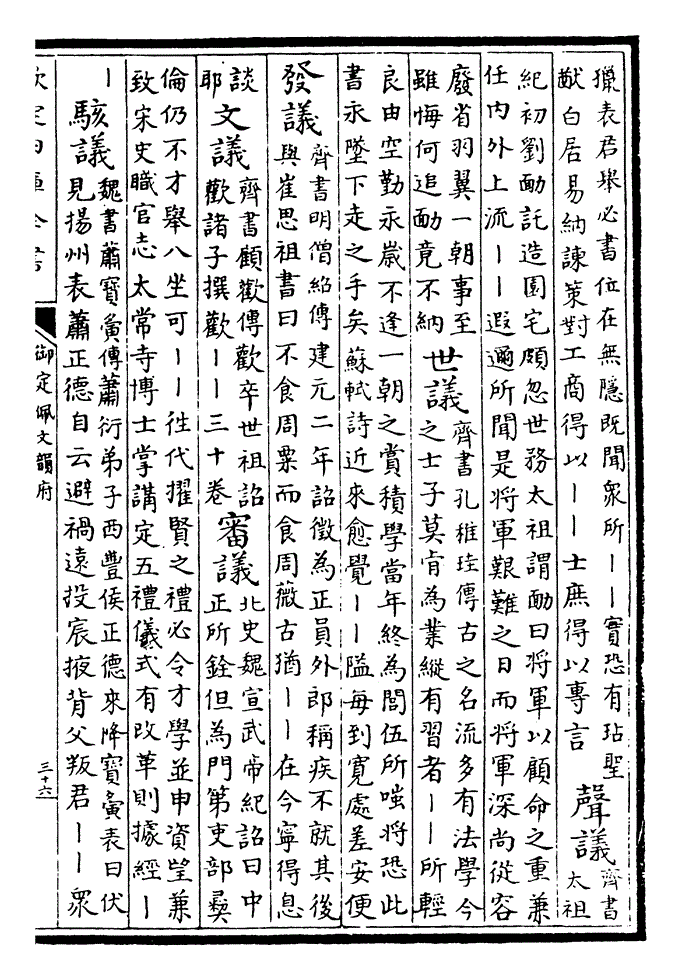 獵表君舉必書位在無隱既聞衆所丨丨實恐有玷聖
猷白居易納諫策對工商得以丨丨士庶得以專言 聲議 齊書太祖
紀初劉勔託造園宅頗忽世務太祖謂勔曰將軍以顧命之重兼
任内外上流丨丨遐邇所聞是將軍艱難之日而將軍深尚從容
廢省羽翼一朝事至
雖悔何追勔竟不納 世議 齊書孔稚珪傳古之名流多有法學今
之士子莫肯為業縱有習者丨丨所輕
良由空勤永嵗不逢一朝之賞積學當年終為閭伍所嗤將恐此
書永墜下走之手矣蘇軾詩近來愈覺丨丨隘每到寛處差安便
發議 齊書明僧紹傳建元二年詔徵為正員外郎稱疾不就其後
與崔思祖書曰不食周粟而食周薇古猶丨丨在今寧得息
談
耶 文議 齊書顧歡傳歡卒世祖詔
歡諸子撰歡丨丨三十卷 審議 北史魏宣武帝紀詔曰中
正所銓但為門第吏部彛
倫仍不才舉八坐可丨丨徃代擢賢之禮必令才學並申資望兼
致宋史職官志太常寺博士掌講定五禮儀式有改革則據經丨
丨 駭議 魏書蕭寶夤傳蕭衍弟子西豐侯正德來降寶夤表曰伏
見揚州表蕭正德自云避禍遠投宸掖背父叛君丨丨衆
御定佩文韻府
三十六